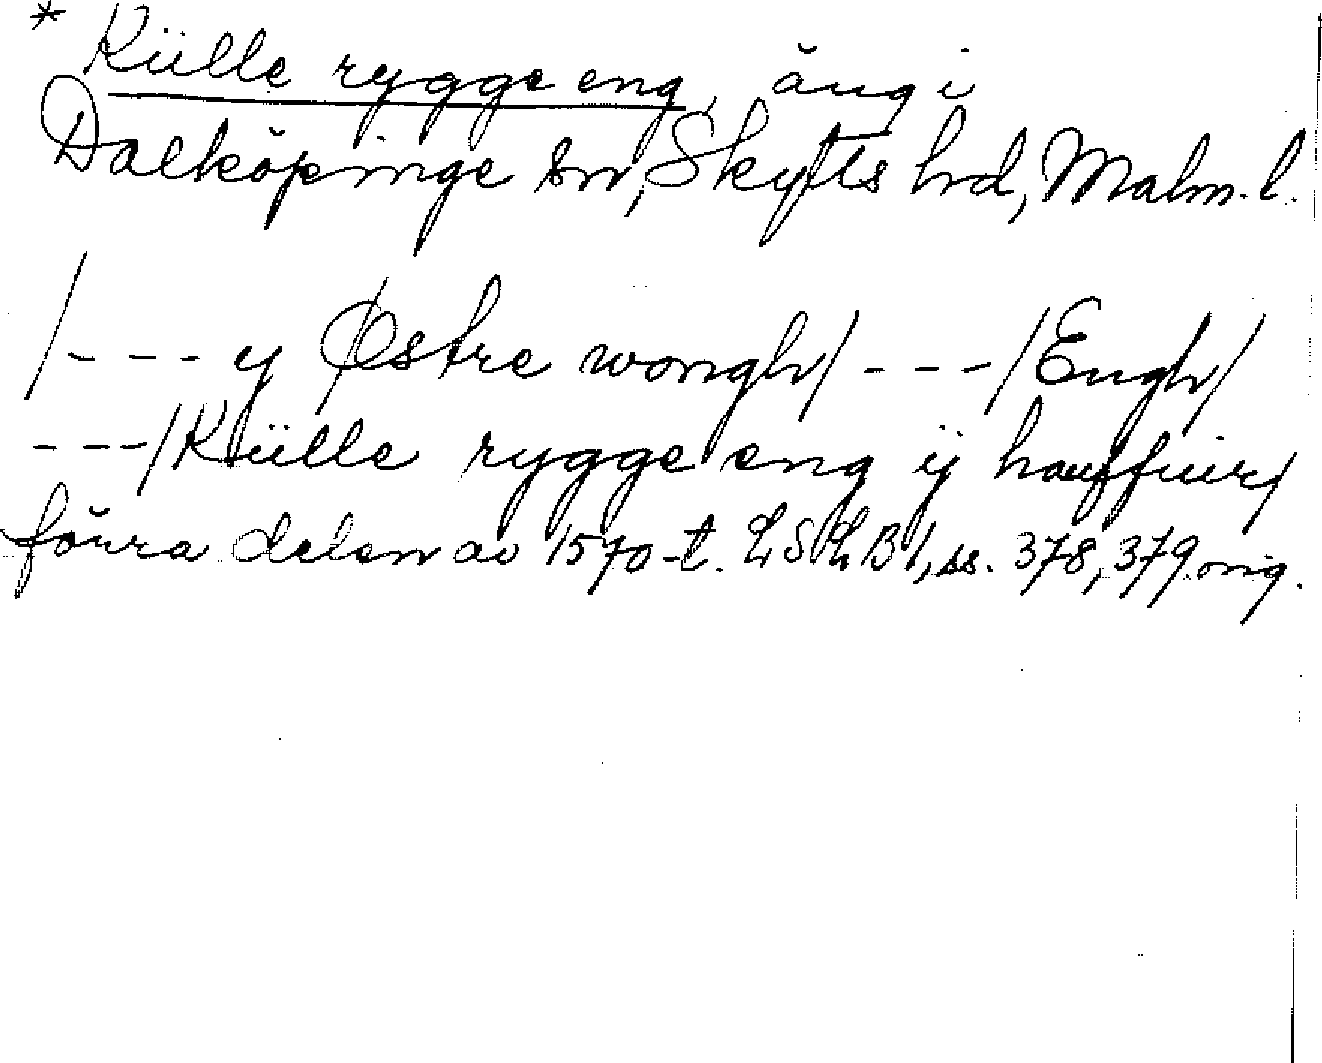 * Külle rygge eng, äng i
Dalköpinge sn, Skytts hd, Malm. l.
/--- y Østre wongh/ ---/Engh/
---/Külle rygge eng ÿ
förra delen av 1570-t. LSLB 1, ss. 378, 379. orig.